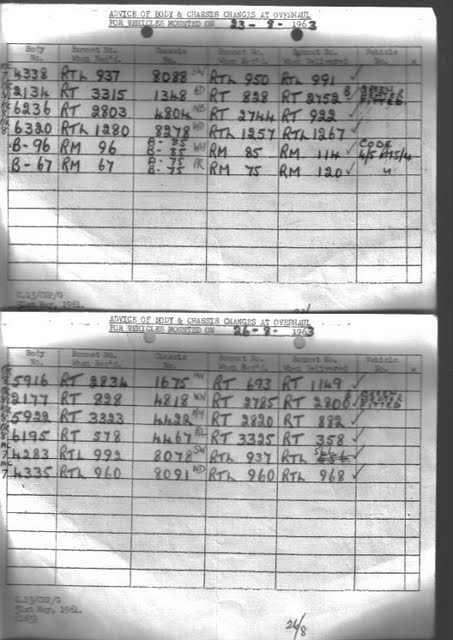 ADVICE OF BODY & CHASSIS CHANGES AT OVERHAUL
FOR VEHICLES MOUNTED ON 23-8-1963
Body No. Bonnet No. When Rec'd. Chassis No. Bonnet No. When Rec'd. Bonnet No. When Delivered Vehicle No. *
7 4338 RTL 937 8088 RTL 950 RTL 991 ✓
2134 RT 3315 1348 RT 828 RT 2752 HEATER FITTED
8 6236 RT 2803 4804 NB RT 2744 RT 922 ✓
8 6320 RTL 1280 8278 RTL 1257 RTL 1267 ✓
B-96 RM 96 B-85 B-85 WH RM 85 RM 114 ✓ CODE 4/5 RM5/4
B-67 RM 67 B-75 B-75 RM 75 RM 120 ✓ "
C.13/CHP/G
31st May, 1961.
ADVICE OF BODY & CHASSIS CHANGES AT OVERHAUL
FOR VEHICLES MOUNTED ON 26-8-1963
Body No. Bonnet No. When Rec'd. Chassis No. Bonnet No. When Rec'd. Bonnet No. When Delivered Vehicle No. *
8 5916 RT 2834 1675 RT 693 RT 1149 ✓
2177 RT 928 4818 WN RT 2785 RT 280 HEATER FITTED
8 5922 RT 3323 4422 RT 2820 RT 882 ✓
8 6195 RT 578 4467 RT 3325 RT 358 ✓
7 4283 RTL 992 8078 SW RTL 937 RTL ✓
7 4335 RTL 960 8091 WD RTL 960 RTL 968 ✓
C.13/CHP/G
31st May, 1961.
(183)
26/8